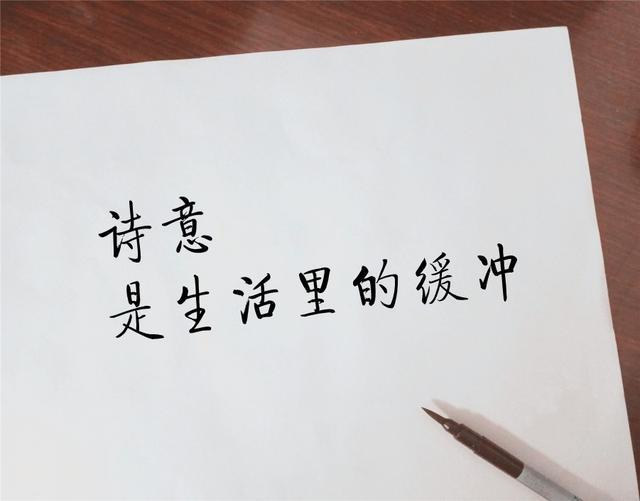 诗意
是生活里的缓冲